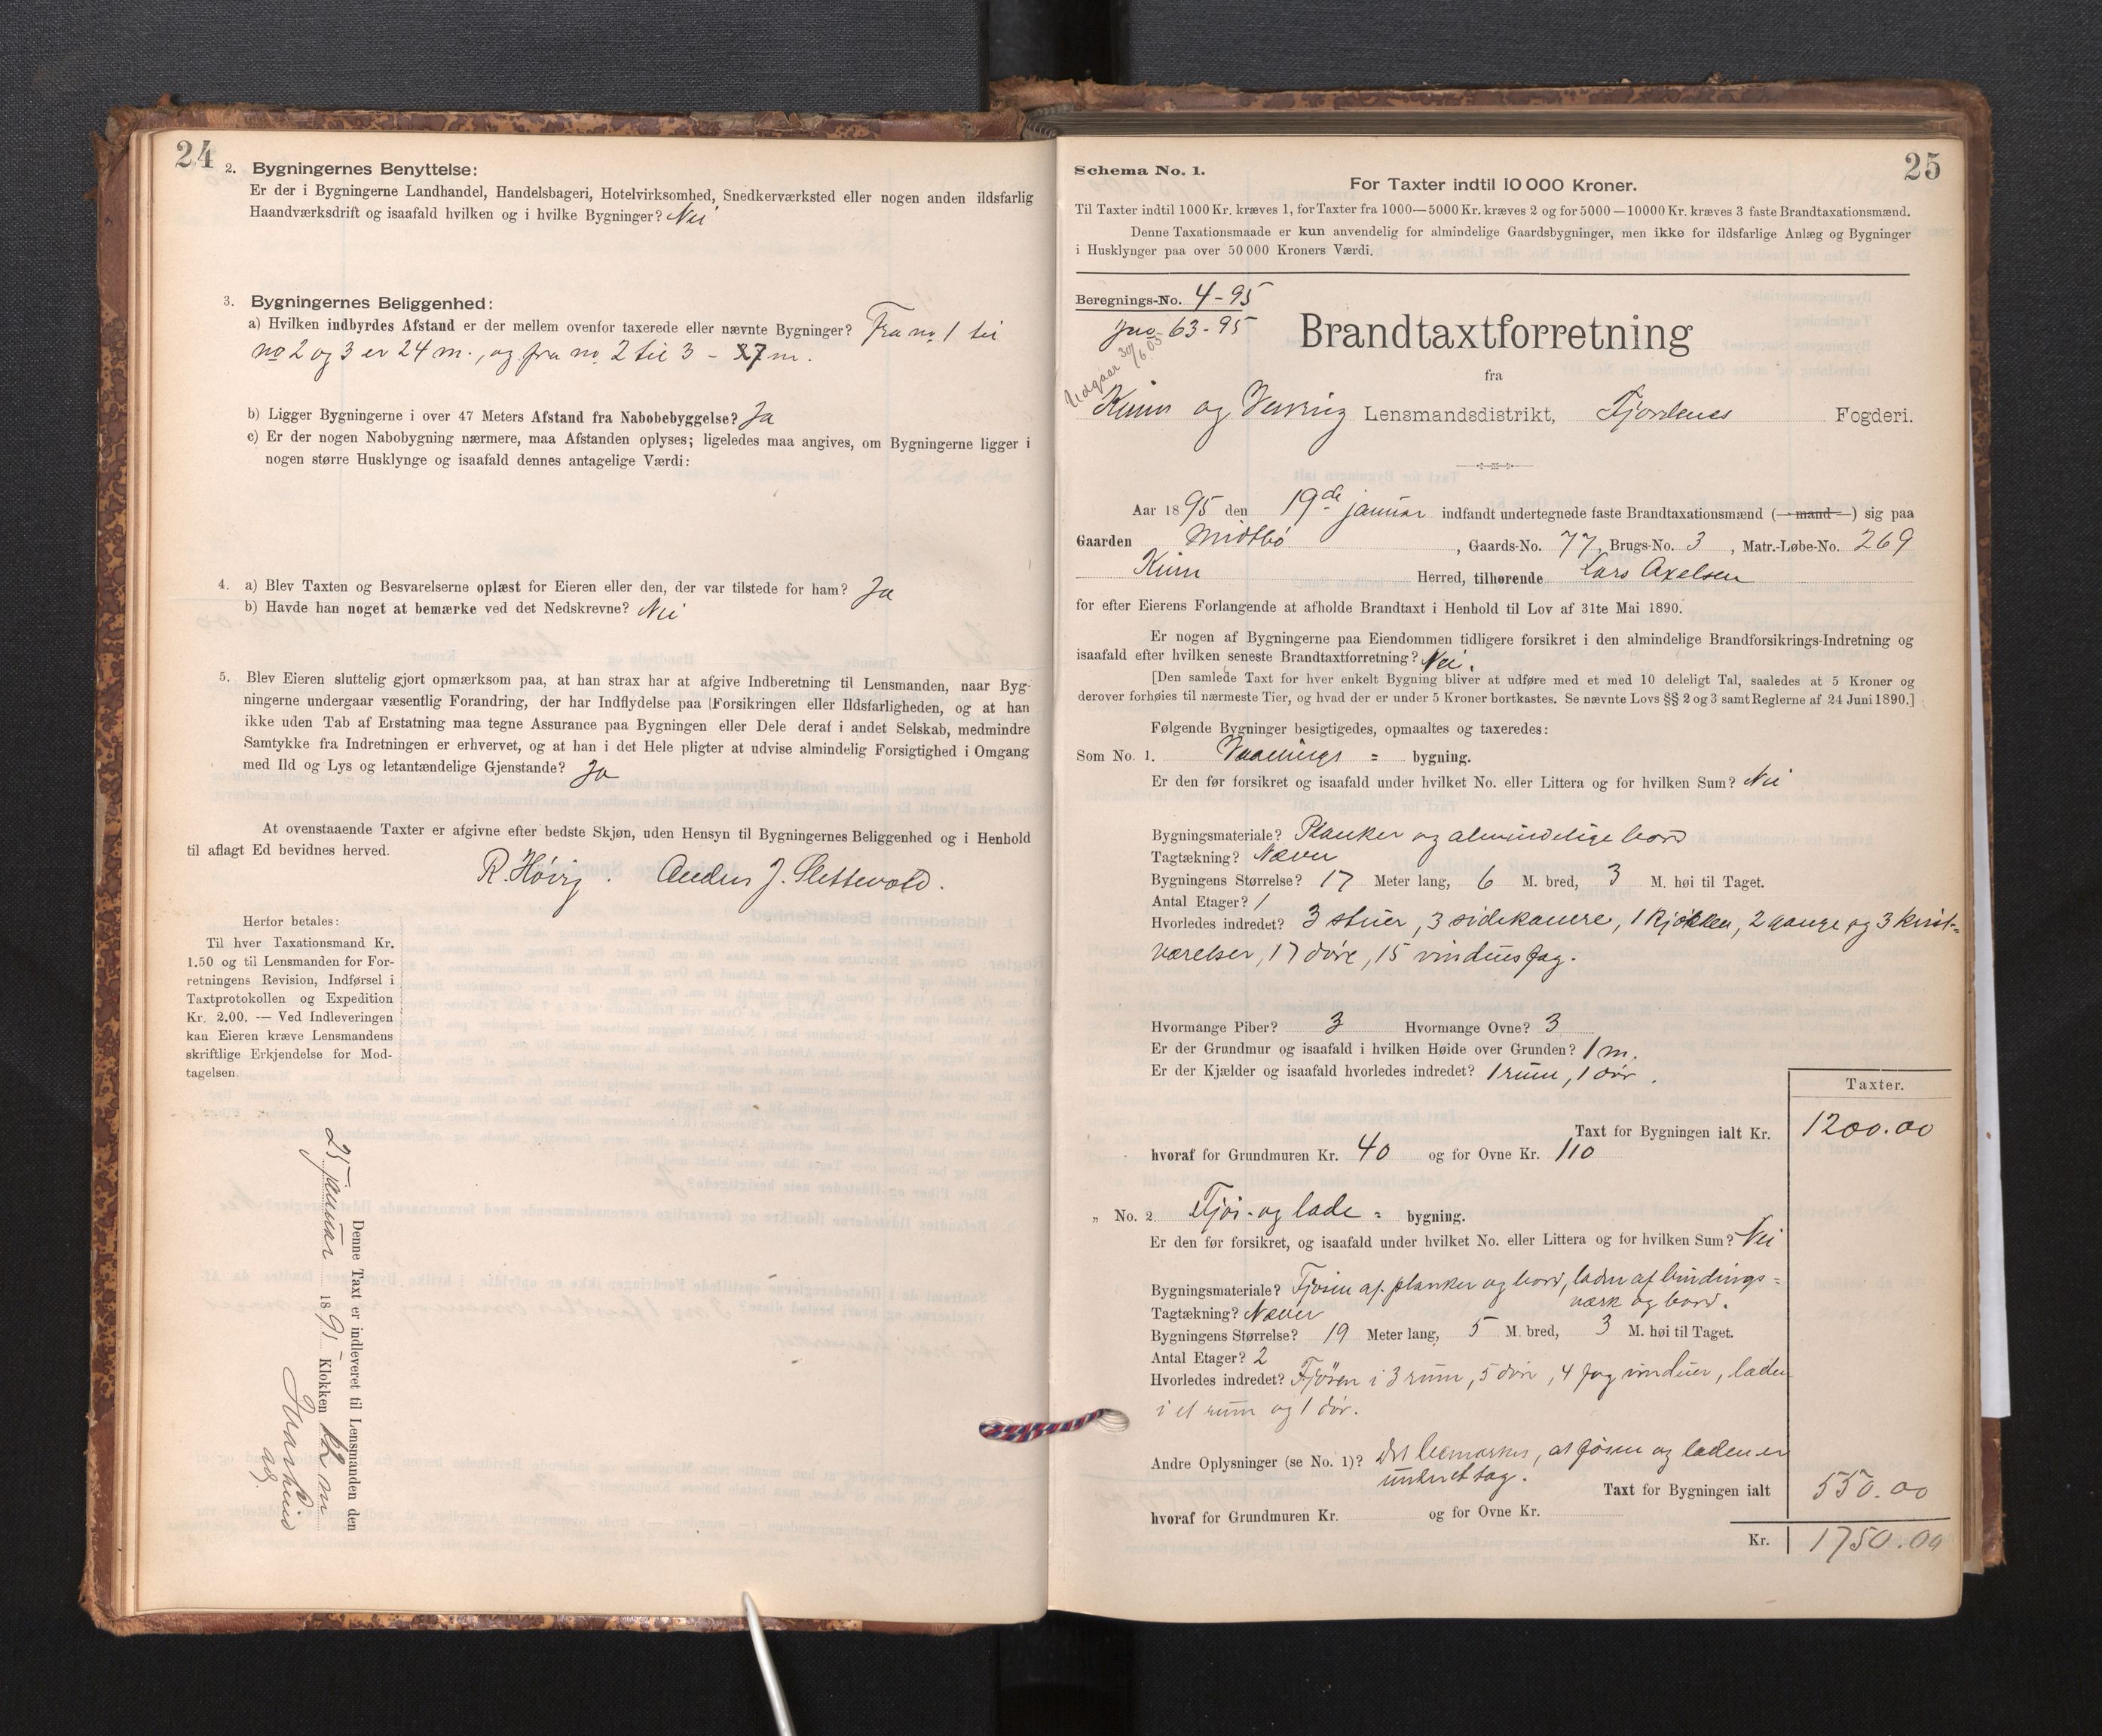 24
2. Bygningernes Benyttelse:
Er der i Bygningerne Landhandel, Handelsbageri, Hotelvirksomhed, Snedkerværksted eller nogen anden ildsfarlig
Haandværksdrift og isaafald hvilken og i hvilke Bygninger? Nei
3. Bygningernes Beliggenhed:
a) Hvilken indbyrdes Afstand er der mellem ovenfor taxerede eller nævnte Bygninger? Fra no 1 til
no 2 og 3 er 24 m., og fra no 2 til 3 - 37 m.
b) Ligger Bygningerne i over 47 Meters Afstand fra Nabobebyggelse? Ja
c) Er der nogen Nabobygning nærmere, maa Afstanden oplyses; ligeledes maa angives, om Bygningerne ligger i
nogen større Husklynge og isaafald dennes antagelige Værdi:
4. a) Blev Taxten og Besvarelserne oplæst for Eieren eller den, der var tilstede for ham? Ja
b) Havde han noget at bemærke ved det Nedskrevne? Nei
5. Blev Eieren sluttelig gjort opmærksom paa, at han strax har at afgive Indberetning til Lensmanden, naar Byg-
ningerne undergaar væsentlig Forandring, der har Indflydelse paa Forsikringen eller Ildsfarligheden, og at han
ikke uden Tab af Erstatning maa tegne Assurance paa Bygningen eller Dele deraf i andet Selskab, medmindre
Samtykke fra Indretningen er erhvervet, og at han i det Hele pligter at udvise almindelig Forsigtighed i Omgang
med Ild og Lys og letantændelige Gjenstande? Ja
At ovenstaaende Taxter er afgivne efter bedste Skjøn, uden Hensyn til Bygningernes Beliggenhed og i Henhold
til aflagt Ed bevidnes herved.
R. Høvig. Anders J. Slettevold.
Herfor betales:
Til hver Taxationsmand Kr.
1.50 og til Lensmanden for For-
retningens Revision, Indførsel i
Taxtprotokollen og Expedition
Kr. 2.00. — Ved Indleveringen
kan Eieren kræve Lensmandens
skriftlige Erkjendelse for Mod-
tagelsen
Denne Taxt er indleveret til Lensmanden den
25 januar 1895 Klokken 12 m
adj.
25
Schema No. 1.
For Taxter indtil 10 000 Kroner.
Til Taxter indtil 1000 Kr. kræves 1, for Taxter fra 1000—5000 Kr. kræves 2 og for 5000—10000 Kr. kræves 3 faste Brandtaxationsmænd.
Denne Taxationsmaade er kun anvendelig for almindelige Gaardsbygninger, men ikke for ildsfarlige Anlæg og Bygninger
i Husklynger paa over 50 000 Kroners Værdi.
Beregnings-No. 4-95
Jno. 63-95
Udgaar 30/6.05
Brandtaxtforretning
fra
Kinn og Vevring Lensmandsdistrikt, Fjordenes Fogderi.
Aar 1895 den 19de januar indfandt undertegnede faste Brandtaxationsmænd (mand) sig paa
Gaarden Midtbø, Gaards-No. 77, Brugs-No. 3, Matr.-Løbe-No. 269
Kinn Herred, tilhørende Lars Axelsen
for efter Eierens Forlangende at afholde Brandtaxt i Henhold til Lov af 31te Mai 1890.
Er nogen af Bygningerne paa Eiendommen tidligere forsikret i den almindelige Brandforsikrings-Indretning og
isaafald efter hvilken seneste Brandtaxtforretning? Nei.
[Den samlede Taxt for hver enkelt Bygning bliver at udføre med et med 10 deleligt Tal, saaledes at 5 Kroner og
derover forhøies til nærmeste Tier, og hvad der er under 5 Kroner bortkastes. Se nævnte Lovs §§ 2 og 3 samt Reglerne af 24 Juni 1890.]
Følgende Bygninger besigtigedes, opmaaltes og taxeredes:
Som No. 1. Vaanings = bygning.
Er den før forsikret og isaafald under hvilket No. eller Littera og for hvilken Sum? Nei
Bygningsmateriale? Planker og almindelige bord
Tagtækning? Næver
Bygningens Størrelse? 17 Meter lang, 6 M. bred, 3 M. høi til Taget.
Antal Etager? 1
Hvorledes indredet? 3 stuer, 3 sidekamre, 1 kjøkken, 2 gange og 3 kvist-
værelser, 17 døre, 15 vinduesfag.
Hvormange Piber? 3 Hvormange Ovne? 3
Er der Grundmur og isaafald i hvilken Høide over Grunden? 1 m.
Er der Kjælder og isaafald hvorledes indredet? 1 rum, 1 dør.
Taxter.
Taxt for Bygningen ialt Kr. 1200.00
hvoraf for Grundmuren Kr. 40 og for Ovne Kr. 110
„ No. 2. Fjøs- og lade = bygning.
Er den før forsikret, og isaafald under hvilket No. eller Littera og for hvilken Sum? Nei
Bygningsmateriale? Fjøsen af planker og bord, laden af bindings=
værk og bord.
Tagtækning? Næver
Bygningens Størrelse? 19 Meter lang, 5 M. bred, 3 M. høi til Taget.
Antal Etager? 2
Hvorledes indredet? Fjøsen i 3 rum, 5 døre, 4 fag vinduer, laden
i et rum og 1 dør.
Andre Oplysninger (se No. 1)? Det bemærkes, at fjøsen og laden er
under et tag.
Taxt for Bygningen ialt 550.00
hvoraf for Grundmuren Kr. og for Ovne Kr.
Kr. 1750.00